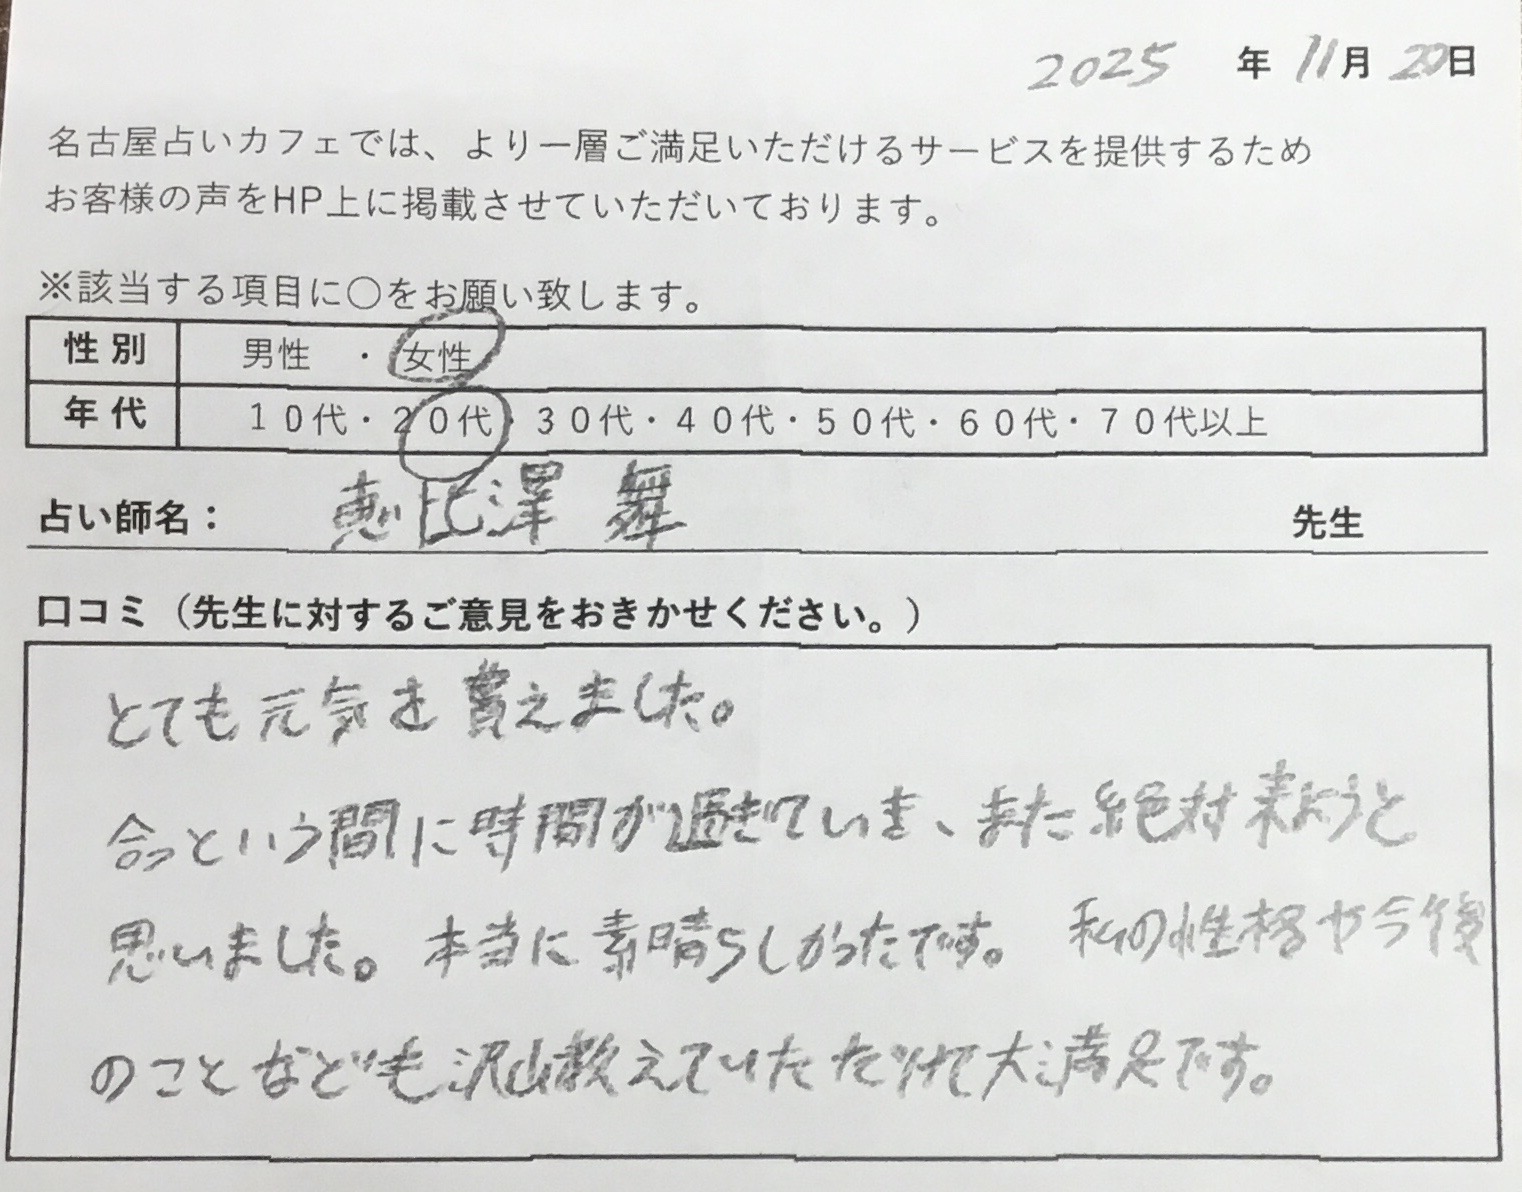 2025 年 11月 20日
名古屋占いカフェでは、より一層ご満足いただけるサービスを提供するため
お客様の声をHP上に掲載させていただいております。
※該当する項目に〇をお願い致します。
性別 男性 ・ 女性
年代 10代・20代・30代・40代・50代・60代・70代以上
占い師名： 恵比澤 舞 先生
口コミ（先生に対するご意見をおきかせください。）
とても元気を貰えました。
合っという間に時間が過ぎていま、また絶対来ようと
思いました。本当に素晴らしかったです。私の性格や今後
のことなども沢山教えていただけて大満足です。